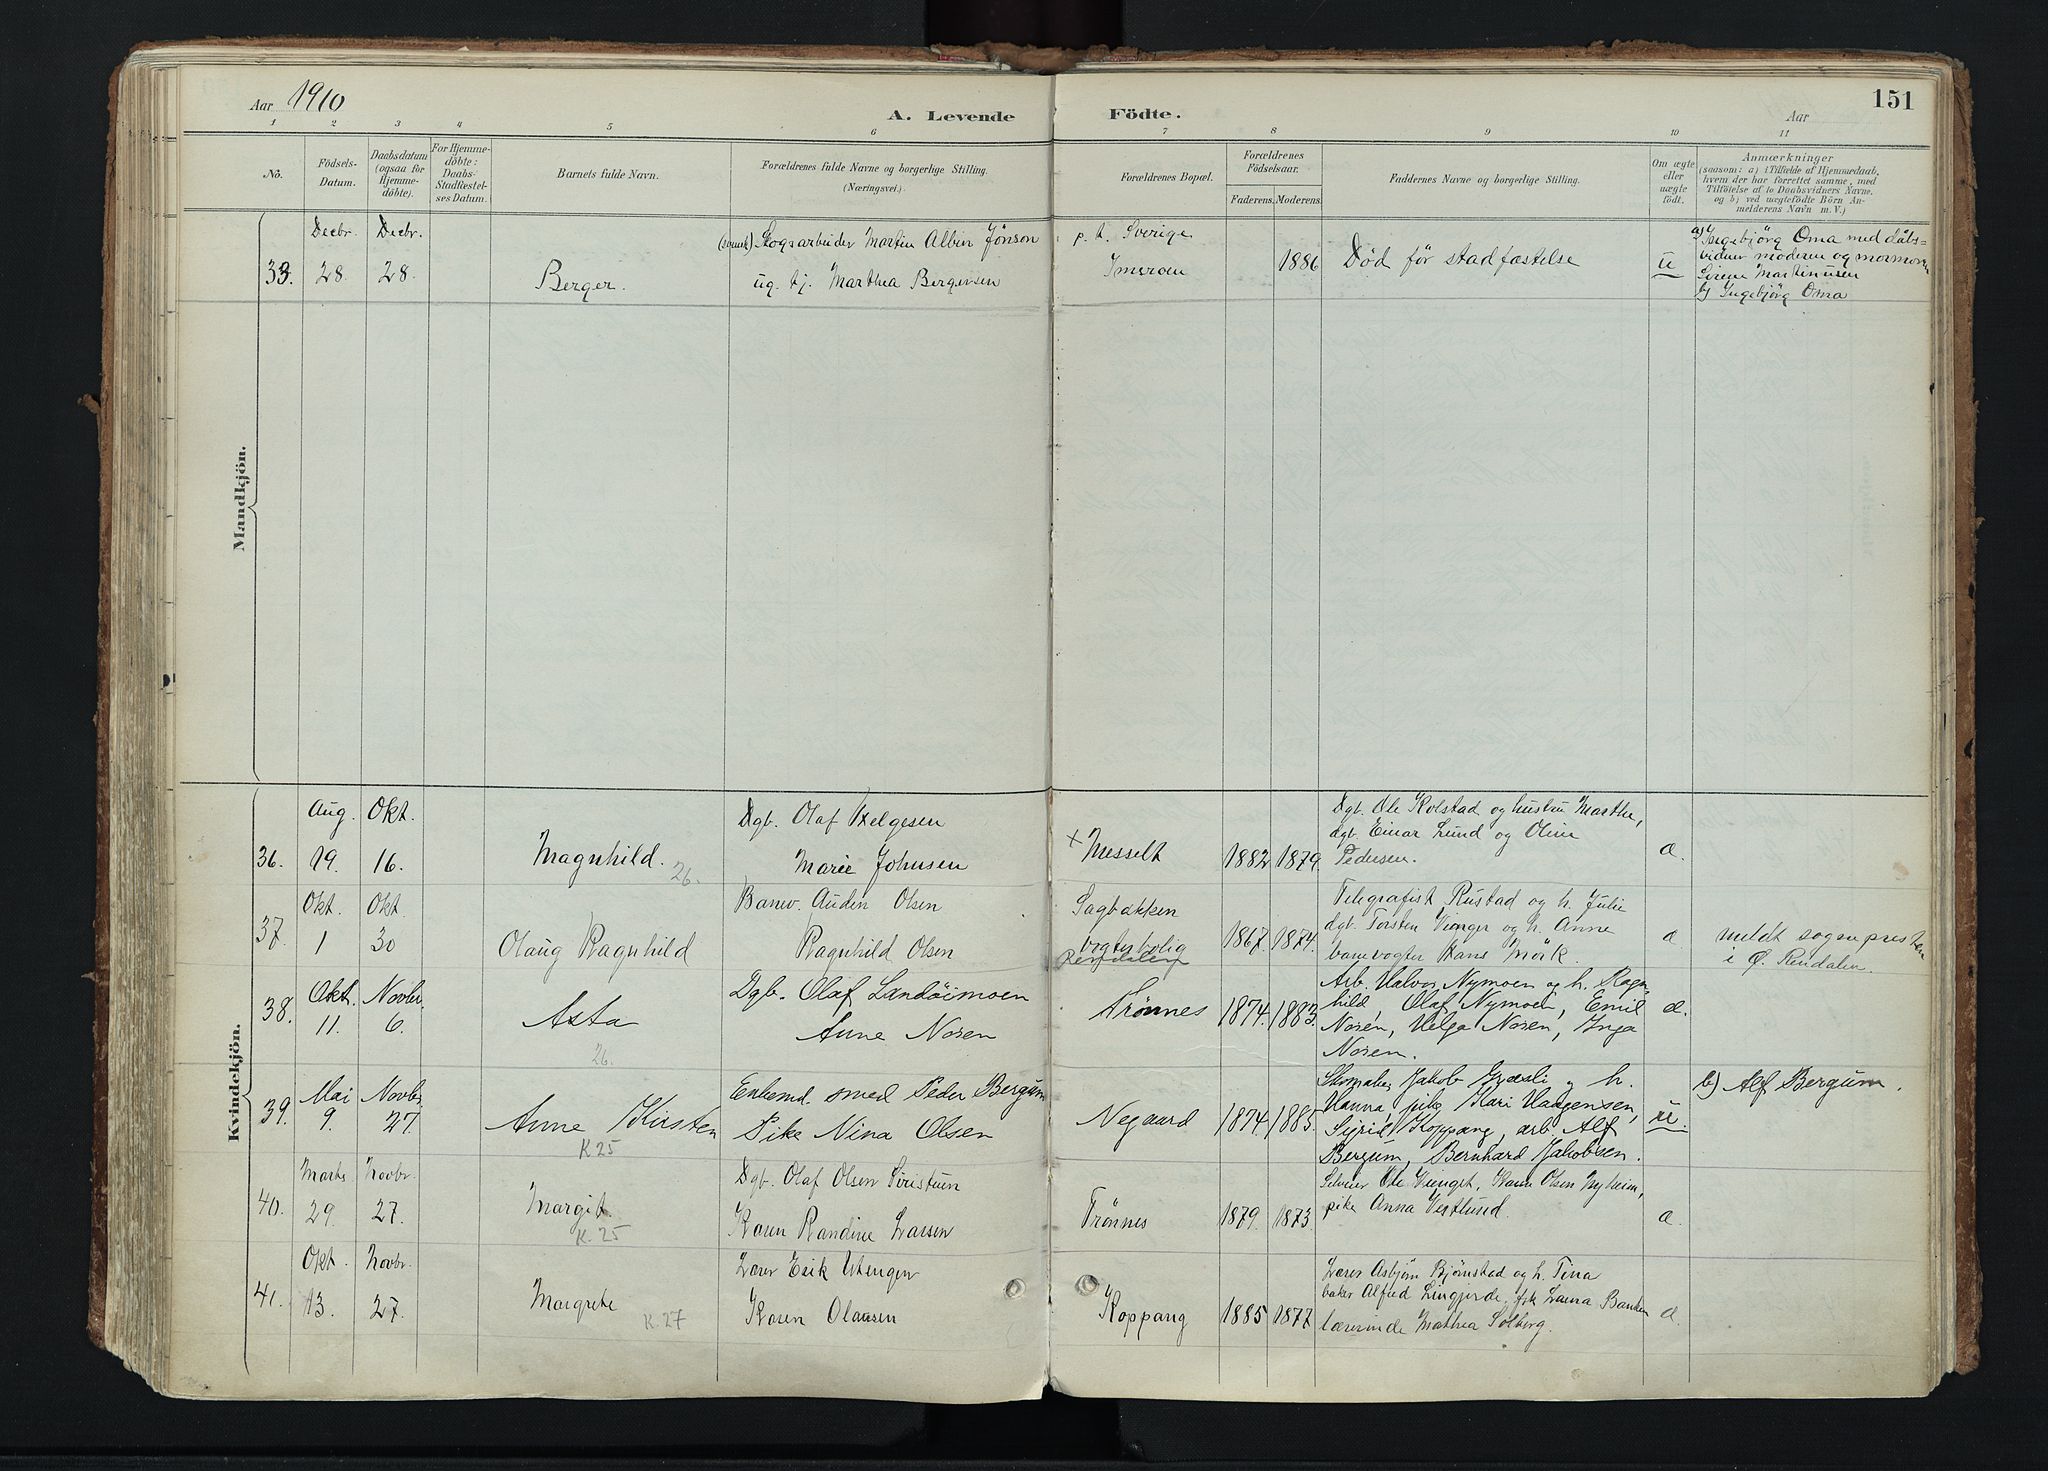 Aar 1910
A. Levende Födte.
Aar
151
1 2 3 4 5 6 7 8 9 10 11
No.
Födsels-
Datum.
Daabsdatum
(ogsaa for
Hjemme-
döbte).
For Hjemme-
döbte:
Daabs-
Stadfæstel-
ses Datum.
Barnets fulde Navn.
Forældrenes fulde Navne og borgerlige Stilling.
(Næringsvei).
Forældrenes Bopæl.
Forældrenes
Födselsaar.
Faderens.
Moderens.
Faddernes Navne og borgerlige Stilling.
Om ægte
eller
uægte
födt.
Anmærkninger
(saasom: a) i Tilfælde af Hjemmedaab,
hvem der har forrettet samme, med
Tilföielse af to Daabsvidners Navne,
og b) ved uægtefödte Börn An-
melderens Navn m. V.)
Mandkjön.
33.
Decbr.
28
Decbr.
28.
Berger.
(svensk) Skogsarbeider Martin Albin Jönson
ug. tj. Marthea Bergersen
p. t. Sverige
Imeroen
1886
Död før stadfæstelse
u
a) Ingebjörg Oma med dåbs=
vidner moderen og mormoren
Sirene Martinusen
b) Ingebjörg Oma
Kvindekjön.
36.
Aug.
19.
Okt.
16.
Magnhild.
26.
Dgb. Olaf Helgesen
Marie Johnsen
+ Messelt
1882
1879.
Dgb. Ole Kolstad og hustru Marthe,
dgb. Einar Lund og Oline
Pedersen.
æ.
37.
Okt.
1
Okt.
30
Olaug Ragnhild
Banev. Auden Olsen
Ragnhild Olsen
Sagbakken
vogterbolig
Rendalen
1867.
1874.
Telegrafist Rustad og h. Julie
dgb. Torsten Vianger og h. Anne
banevogter Hans Mörk.
æ
meldt sognepresten
i Ø. Rendalen.
38.
Okt.
11.
Novbr.
6.
Asta
26.
Dgb. Olaf Landöimoen
Anne Noren
Trønnes
1874.
1883.
Arb. Halvor Nymoen og h. Ragn-
hild Olaf Nymoen, Emil
Norén, Helga Noren, Inga
Noren.
æ.
39.
Mai
9.
Novbr.
27.
Anne Kirsten
K 25
Enkemd. smed Peder Bergum
Pike Nina Olsen
Negaard
1874.
1885.
Skomaker Jakob Græsli og h.
Hanna, pike Kari Haagensen,
Sigrid Koppang, arb. Alf
Bergum, Bernhard Jakobsen.
u.
b) Alf Bergum.
40.
Marts
29.
Novbr.
27.
Margit.
K. 25
Dgb. Olaf Olsen
Karen Randine Larsen
Trönnes
1879.
1873
Ole Hanne Olsen Nyheim,
pike Anna Vestlund.
æ.
41.
Okt.
13.
Novbr.
27.
Margrete
K. 27
Lærer Erik Utengen
Karen Olausen
Koppang
1885
1877
Lærer Asbjörn Bjørnstad og h. Tina
baker Alfred Lingjerde, frk Laura Banken
lærerinde Mathea Solberg.
æ.